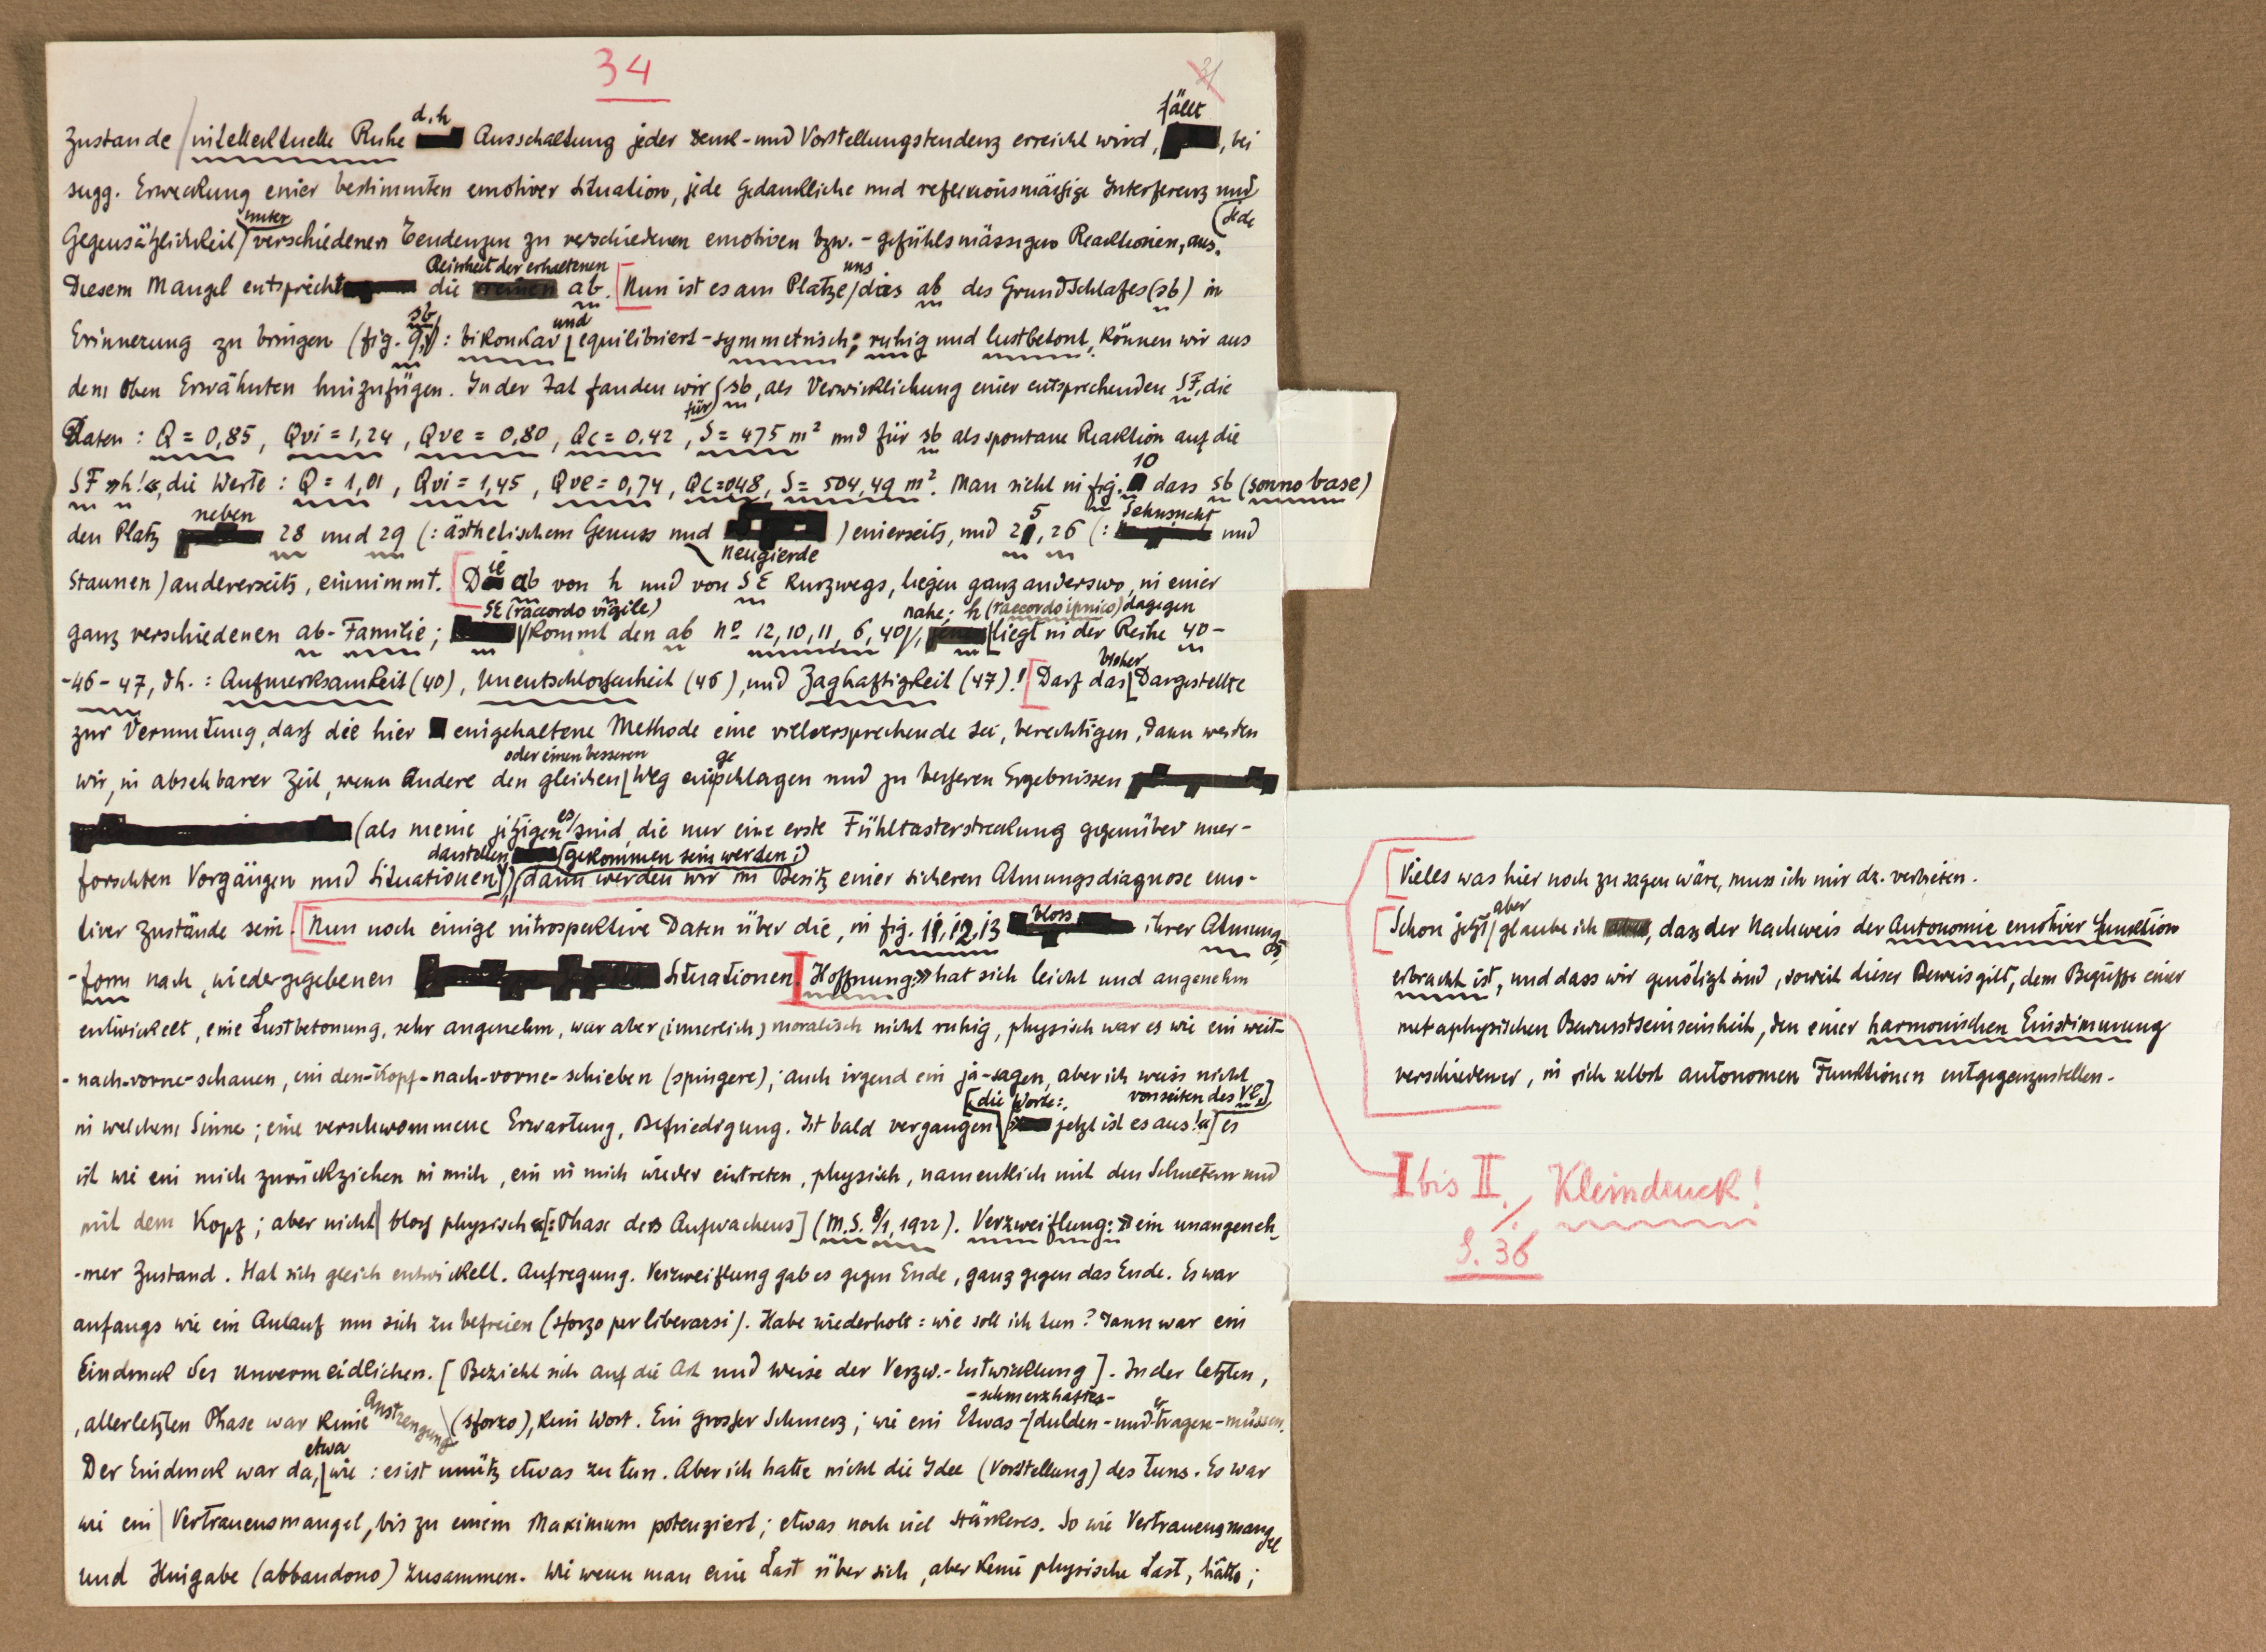 34
31
Zustande intellektuelle Ruhe d.h Ausschaltung jeder Denk- und Vorstellungstendenz erreicht wird, fällt, bei
sugg. Erweckung einer bestimmten emotiver Situation, jede gedankliche und reflexionsmäßige Interferenz und jede
Gegensätzlichkeit unter verschiedenen Tendenzen zu verschiedenen emotiven bzw. - gefühlsmässigen Reaktionen, aus.
Diesem Mangel entspricht die Reinheit der erhaltenen ab. [Nun ist es am Platze uns das ab des Grundschlafes (sb) in
Erinnerung zu bringen (fig. 9, sb): bikonkav und equilibriert-symmetrisch; ruhig und lustbetont, können wir aus
dem Oben Erwähnten hinzufügen. In der Tat fanden wir für sb, als Verwirklichung einer entsprechenden SF, die
Daten: Q = 0,85, Qvi = 1,24, Qve = 0,80, Qc = 0,42, S = 475 m² und für sb als spontane Reaktion auf die
SF »h!«, die Werte: Q = 1,01, Qvi = 1,45, Qve = 0,74, Qc = 048, S = 504,49 m². Man sieht in fig. 10 dass sb (sonno base)
den Platz neben 28 und 29 (: ästhetischem Genuss und Neugierde) einerseits, und 25, 26 (: Sehnsucht und
Staunen) andererseits, einnimmt. [Die ab von h und von SE kurzwegs, liegen ganz anderswo, in einer
ganz verschiedenen ab-Familie; SE (raccordo vigile) kommt den ab nº 12, 10, 11, 6, 40, nahe; h (raccordo ipnico) dagegen liegt in der Reihe 40-
-46-47, dh.: Aufmerksamkeit (40), Unentschlossenheit (46), und Zaghaftigkeit (47)! [Darf das bisher Dargestellte
zur Vermutung, dass die hier eingehaltene Methode eine vielversprechende sei, berechtigen, dann werden
wir, in absehbarer Zeit, wenn Andere den gleichen oder einen besseren Weg eingeschlagen und zu besseren Ergebnissen
(als meine jetzigen es sind, die nur eine erste Fühltasterstreckung gegenüber uner-
forschten Vorgängen und Situationen darstellen) gekommen sein werden; dann werden wir im Besitz einer sicheren Atmungsdiagnose emo-
tiver Zustände sein. [Nun noch einige introspektive Daten über die, in fig. 11, 12, 13 bloss ihrer Atmungs-
-form nach, wiedergegebenen Situationen. I Hoffnung: »hat sich leicht und angenehm
entwickelt, eine Lustbetonung, sehr angenehm, war aber (innerlich) moralisch nicht ruhig, physisch war es wie ein weit-
-nach-vorne-schauen, ein den-Kopf-nach-vorne-schieben (spingere); auch irgend ein ja-sagen, aber ich weiss nicht
in welchem Sinne; eine verschwommene Erwartung, Befriedigung. Ist bald vergangen [die Worte:, vonseiten des VL, jetzt ist es aus!«] es
ist wie ein mich zurückziehen in mich, ein in mich wieder eintreten, physisch, namentlich mit den Schultern und
mit dem Kopf; aber nicht bloss physisch« [: Phase des Aufwachens] (M.S. 8/1, 1922). Verzweiflung: »ein unangeneh-
-mer Zustand. Hat sich gleich entwickelt. Aufregung. Verzweiflung gab es gegen Ende, ganz gegen das Ende. Es war
anfangs wie ein Anlauf um sich zu befreien (sforzo per liberarsi). Habe wiederholt: wie soll ich tun? Dann war ein
Eindruck des Unvermeidlichen. [Bezieht sich auf die Art und Weise der Verzw.-Entwicklung]. In der letzten,
, allerletzten Phase war keine Anstrengung (sforzo), kein Wort. Ein grosser Schmerz; wie ein Etwas-schmerzhaftes-dulden-und-ertragen-müssen.
Der Eindruck war da, etwa wie: es ist unnütz etwas zu tun. Aber ich hatte nicht die Idee (Vorstellung) des Tuns. Es war
wie ein Vertrauensmangel, bis zu einem Maximum potenziert; etwas noch viel Stärkeres. So wie Vertrauensmangel
und Hingabe (abbandono) zusammen. Wie wenn man eine Last über sich, aber keine physische Last, hätte;
[Vieles was hier noch zu sagen wäre, muss ich mir dz. verbieten.
[Schon jetzt aber glaube ich, dass der Nachweis der Autonomie emotiver Funktion
erbracht ist, und dass wir genötigt sind, soweit dieser Beweis gilt, dem Begriffe einer
metaphysischen Bewusstseinseinheit, den einer harmonischen Einstimmung
verschiedener, in sich selbst autonomen Funktionen entgegenzustellen.
I bis II ./. Kleindruck!
S. 36